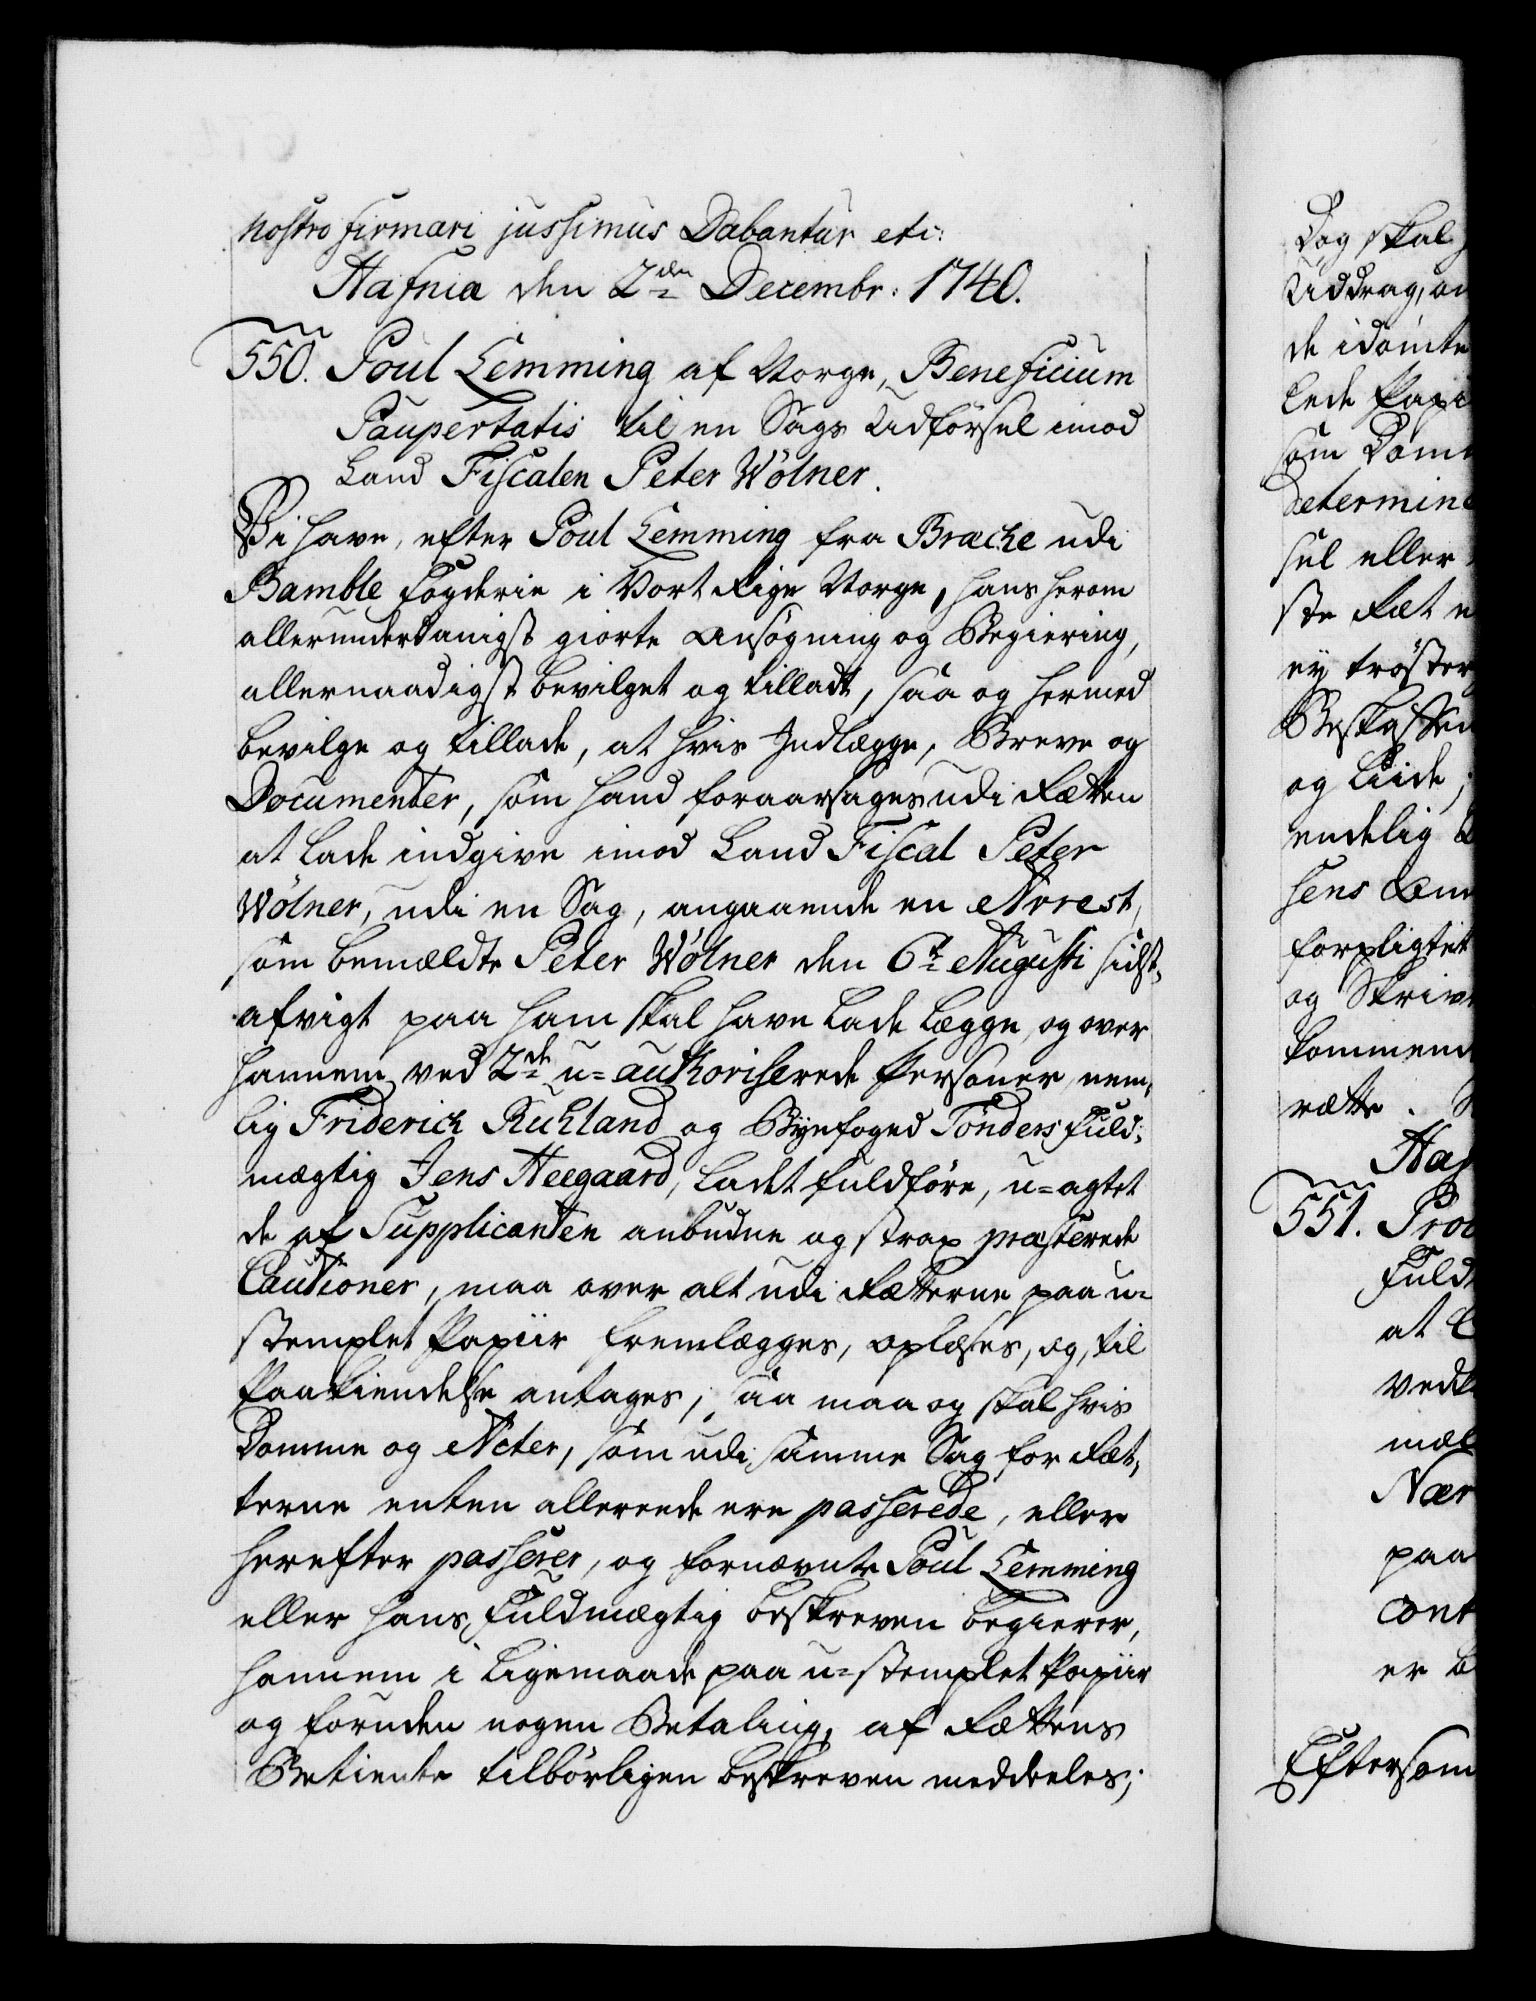 nostro firmari jussimus Dabantur etc:
Hafnia den 2den Decembr: 1740.
550. Poul Lemming af Norge, Beneficium
Paupertatis til en Sags Udförsel imod
Land Fiscalen Peter Wölner.
Vi have, efter Poul Lemming fra Bræche udi
Bamble Fogderie i Vort Rige Norge, hans herom
allerunderdanigst giorte Ansögning og Begiering,
allernaadigst bevilget og tilladt, saa og hermed
bevilge og tillade, at hvis Indlægge, Breve og
Documenter, som hand foraarsages udi Retten
at lade indgive imod Land Fiscal Peter
Wölner, udi en Sag, angaaende en Arrest,
som bemældte Peter Wölner den 6te Augusti sidst,
afvigt paa ham skal have lade lægge, og over
hannem ved 2de u=authoriserede Personer, nem,
lig Friderich Ruhland og Byefoged Tönders Fuld,
mægtig Jens Heegaard, ladet fuldföre, u=agtet
de af Supplicanten anbudne og strax præsterede
Cautioner, maa over alt udi Retterne paa u=
stemplet Papiir fremlægges, oplæses, og, til
Paakiendelse antages, saa maa og skal hvis
Domme og Acter, som udi samme Sag for Ret,
terne enten allerede ere passerede, eller
herefter passerer, og fornævnte Poul Lemming
eller hans Fuldmægtig beskreven begierer,
hannem i ligemaade paa u=stemplet Papiir
og foruden nogen Betaling, af Rettens
Betiente tilbörligen beskreven meddeeles;
Dog skal
Uddrag, an
de idömte
lede Papi
som Dom
determine
sel eller
ste Ret
ey tröster
Beskyttel
og Liide,
endelig
sens
forpligtet
og Skriv
kommend
rette.
Haf
551. Proc
Fuld
at
ved
mæl
Nær
paa
cont
er b
Eftersom